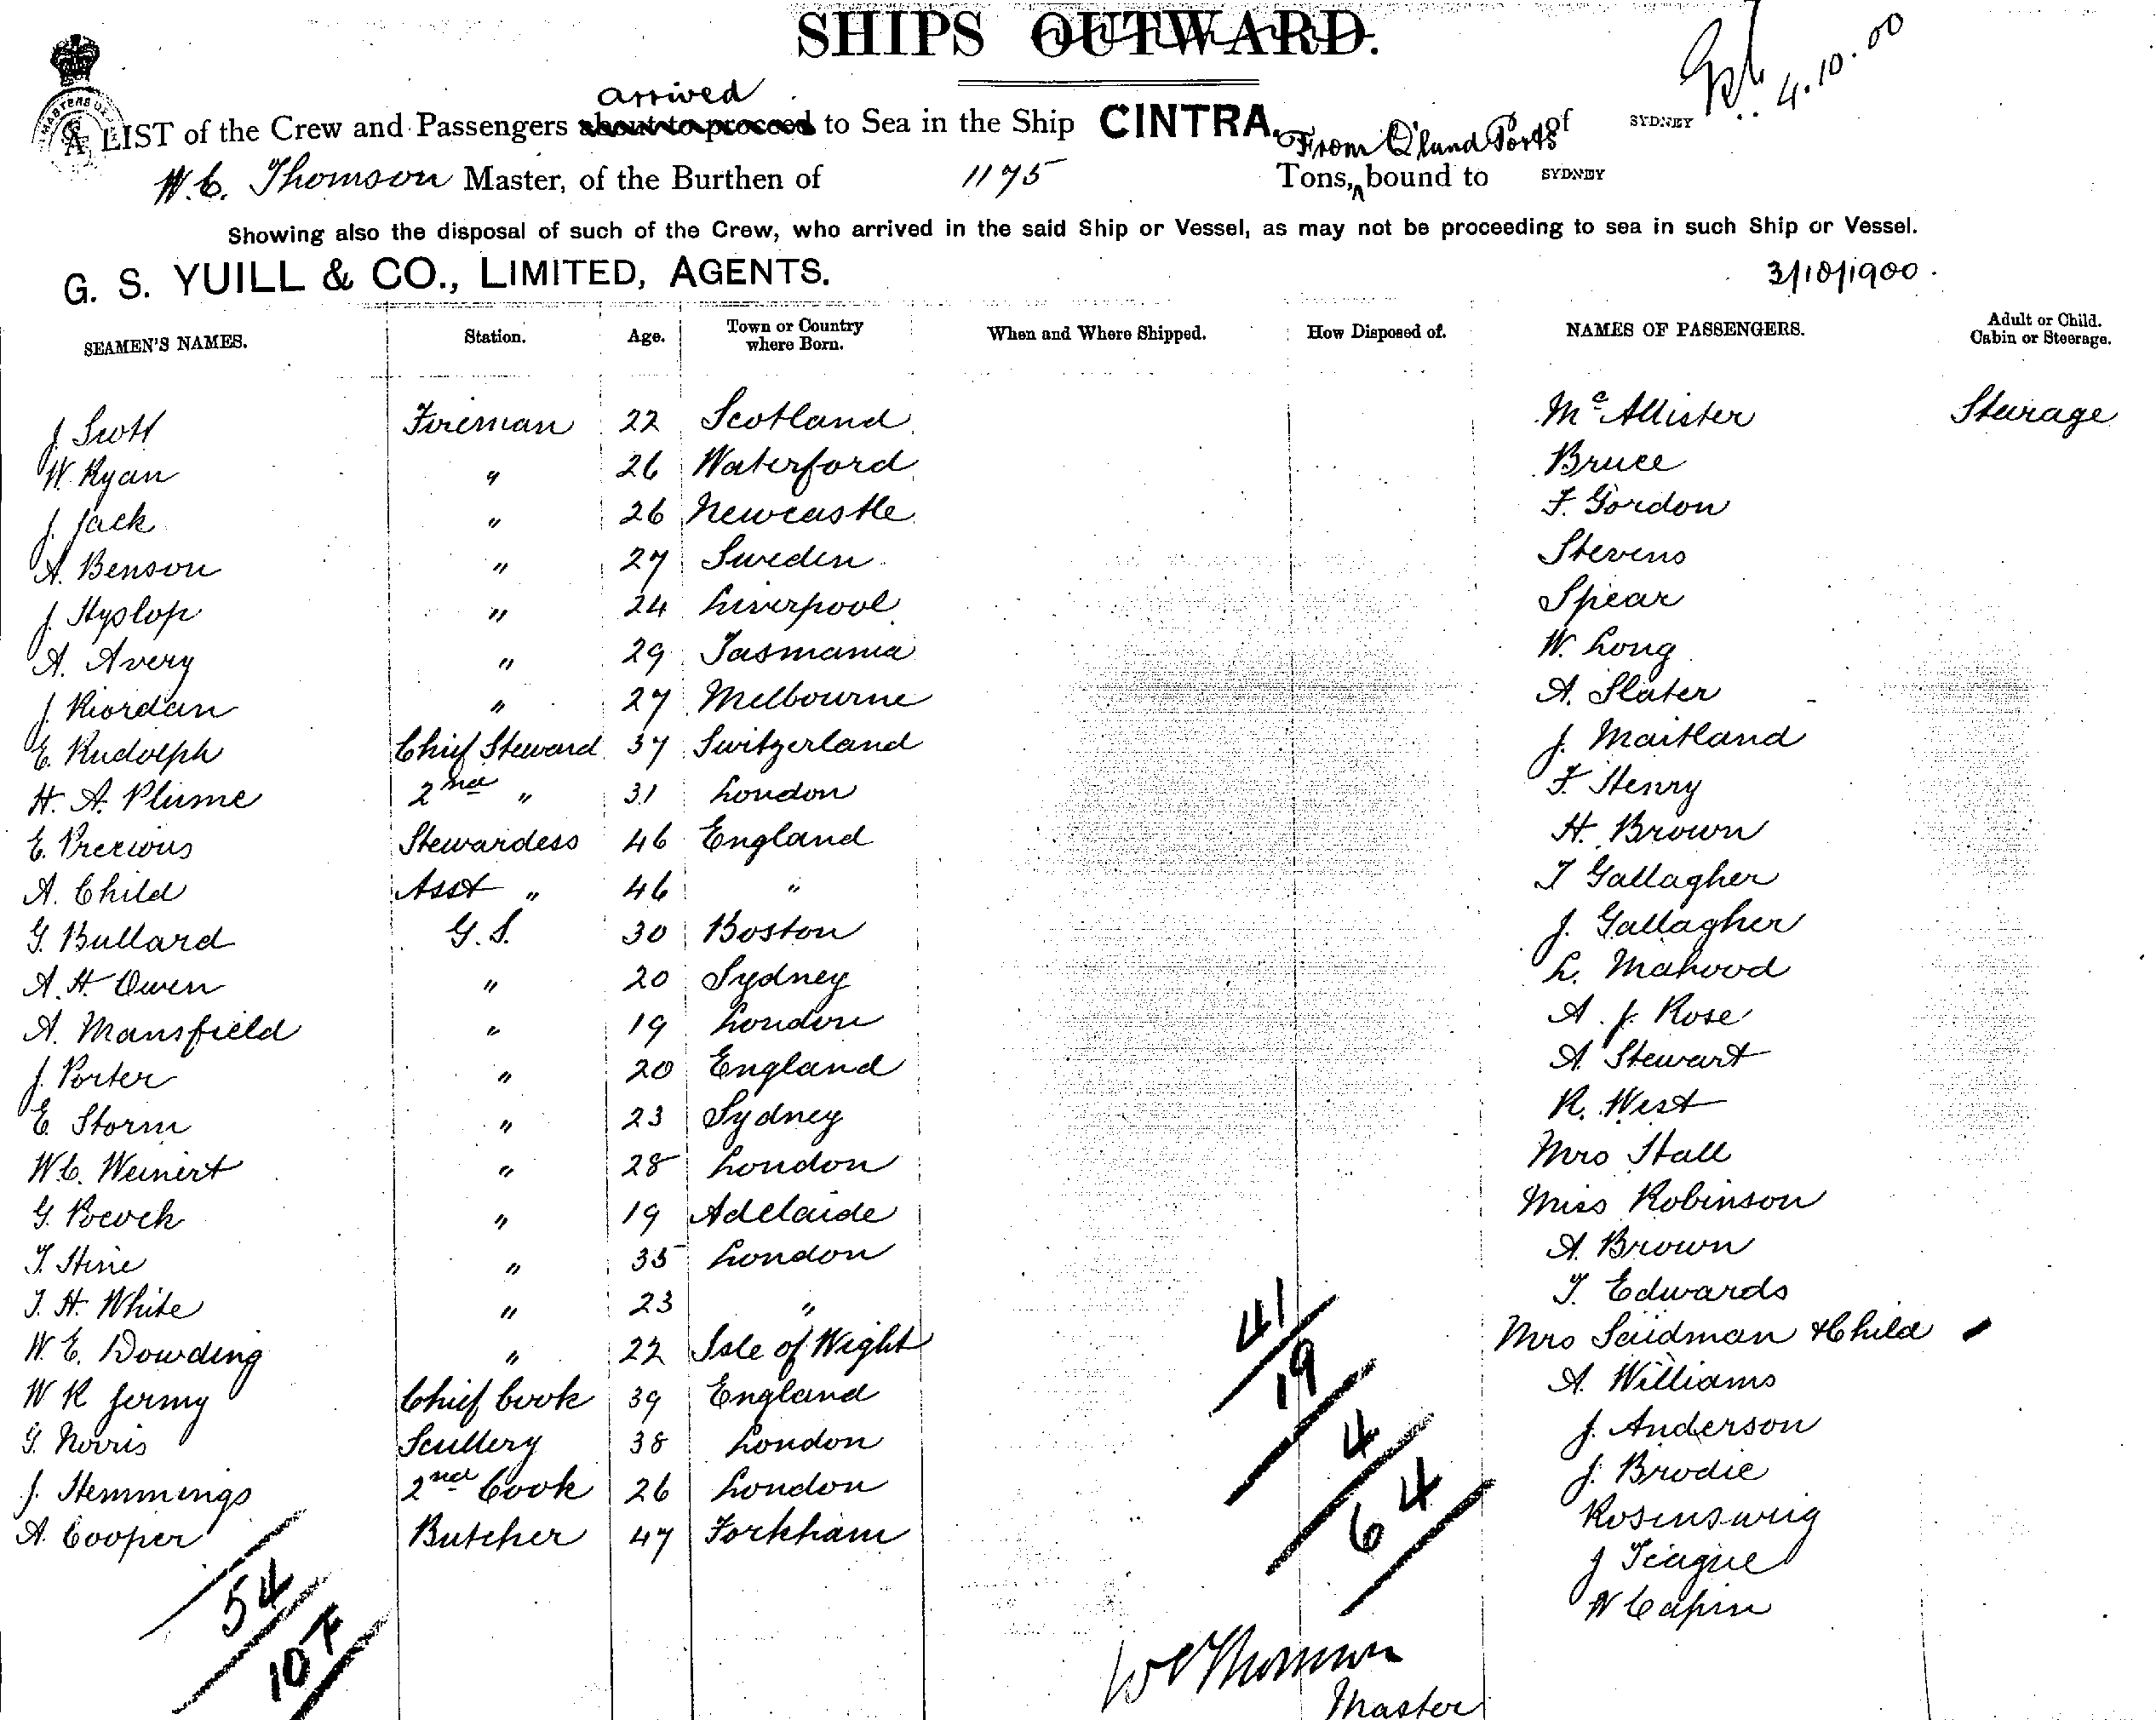 SHIPS OUTWARD.
4.10.00
arrived
A LIST of the Crew and Passengers about to proceed to Sea in the Ship CINTRA, of SYDNEY
From Q'land Ports
W. C. Thomson Master, of the Burthen of 1175 Tons, bound to SYDNEY
Showing also the disposal of such of the Crew, who arrived in the said Ship or Vessel, as may not be proceeding to sea in such Ship or Vessel.
G. S. YUILL & CO., LIMITED, AGENTS. 3/10/1900.
SEAMEN'S NAMES. Station. Age. Town or Country where Born. When and Where Shipped. How Disposed of. NAMES OF PASSENGERS. Adult or Child. Cabin or Steerage.
J Scott Fireman 22 Scotland McAllister Steerage
W. Ryan " 26 Waterford Bruce
J. Jack " 26 Newcastle F. Gordon
A. Benson " 27 Sweden Stevens
J. Hyslop " 24 Liverpool Spear
A. Avery " 29 Tasmania W. Long
J. Riordan " 27 Melbourne A. Slater
E. Rudolph Chief Steward 37 Switzerland J. Maitland
H. A. Plume 2nd " 31 London F. Henry
E. Precious Stewardess 46 England H. Brown
A. Child Asst " 46 " T Gallagher
G. Bullard G. S. 30 Boston J. Gallagher
A. H. Owen " 20 Sydney L. Mahood
A. Mansfield " 19 London A. J. Rose
J. Porter " 20 England A. Stewart
E. Storm " 23 Sydney R. West
W. C. Weinert " 28 London Mrs Hall
G. Pocock " 19 Adelaide Miss Robinson
T. Hine " 35 London A. Brown
T. H. White " 23 " T. Edwards
W. E. Dowding " 22 Isle of Wight Mrs Saidman & Child
W R Jermy Chief Cook 39 England A. Williams
G. Norris Scullery 38 London J. Anderson
J. Hemmings 2nd Cook 26 London J. Brodie
A. Cooper Butcher 47 Forkham Rosenswig
J Teague
W Capin
41
19
4
64
54
10 F
W C Thomson
Master